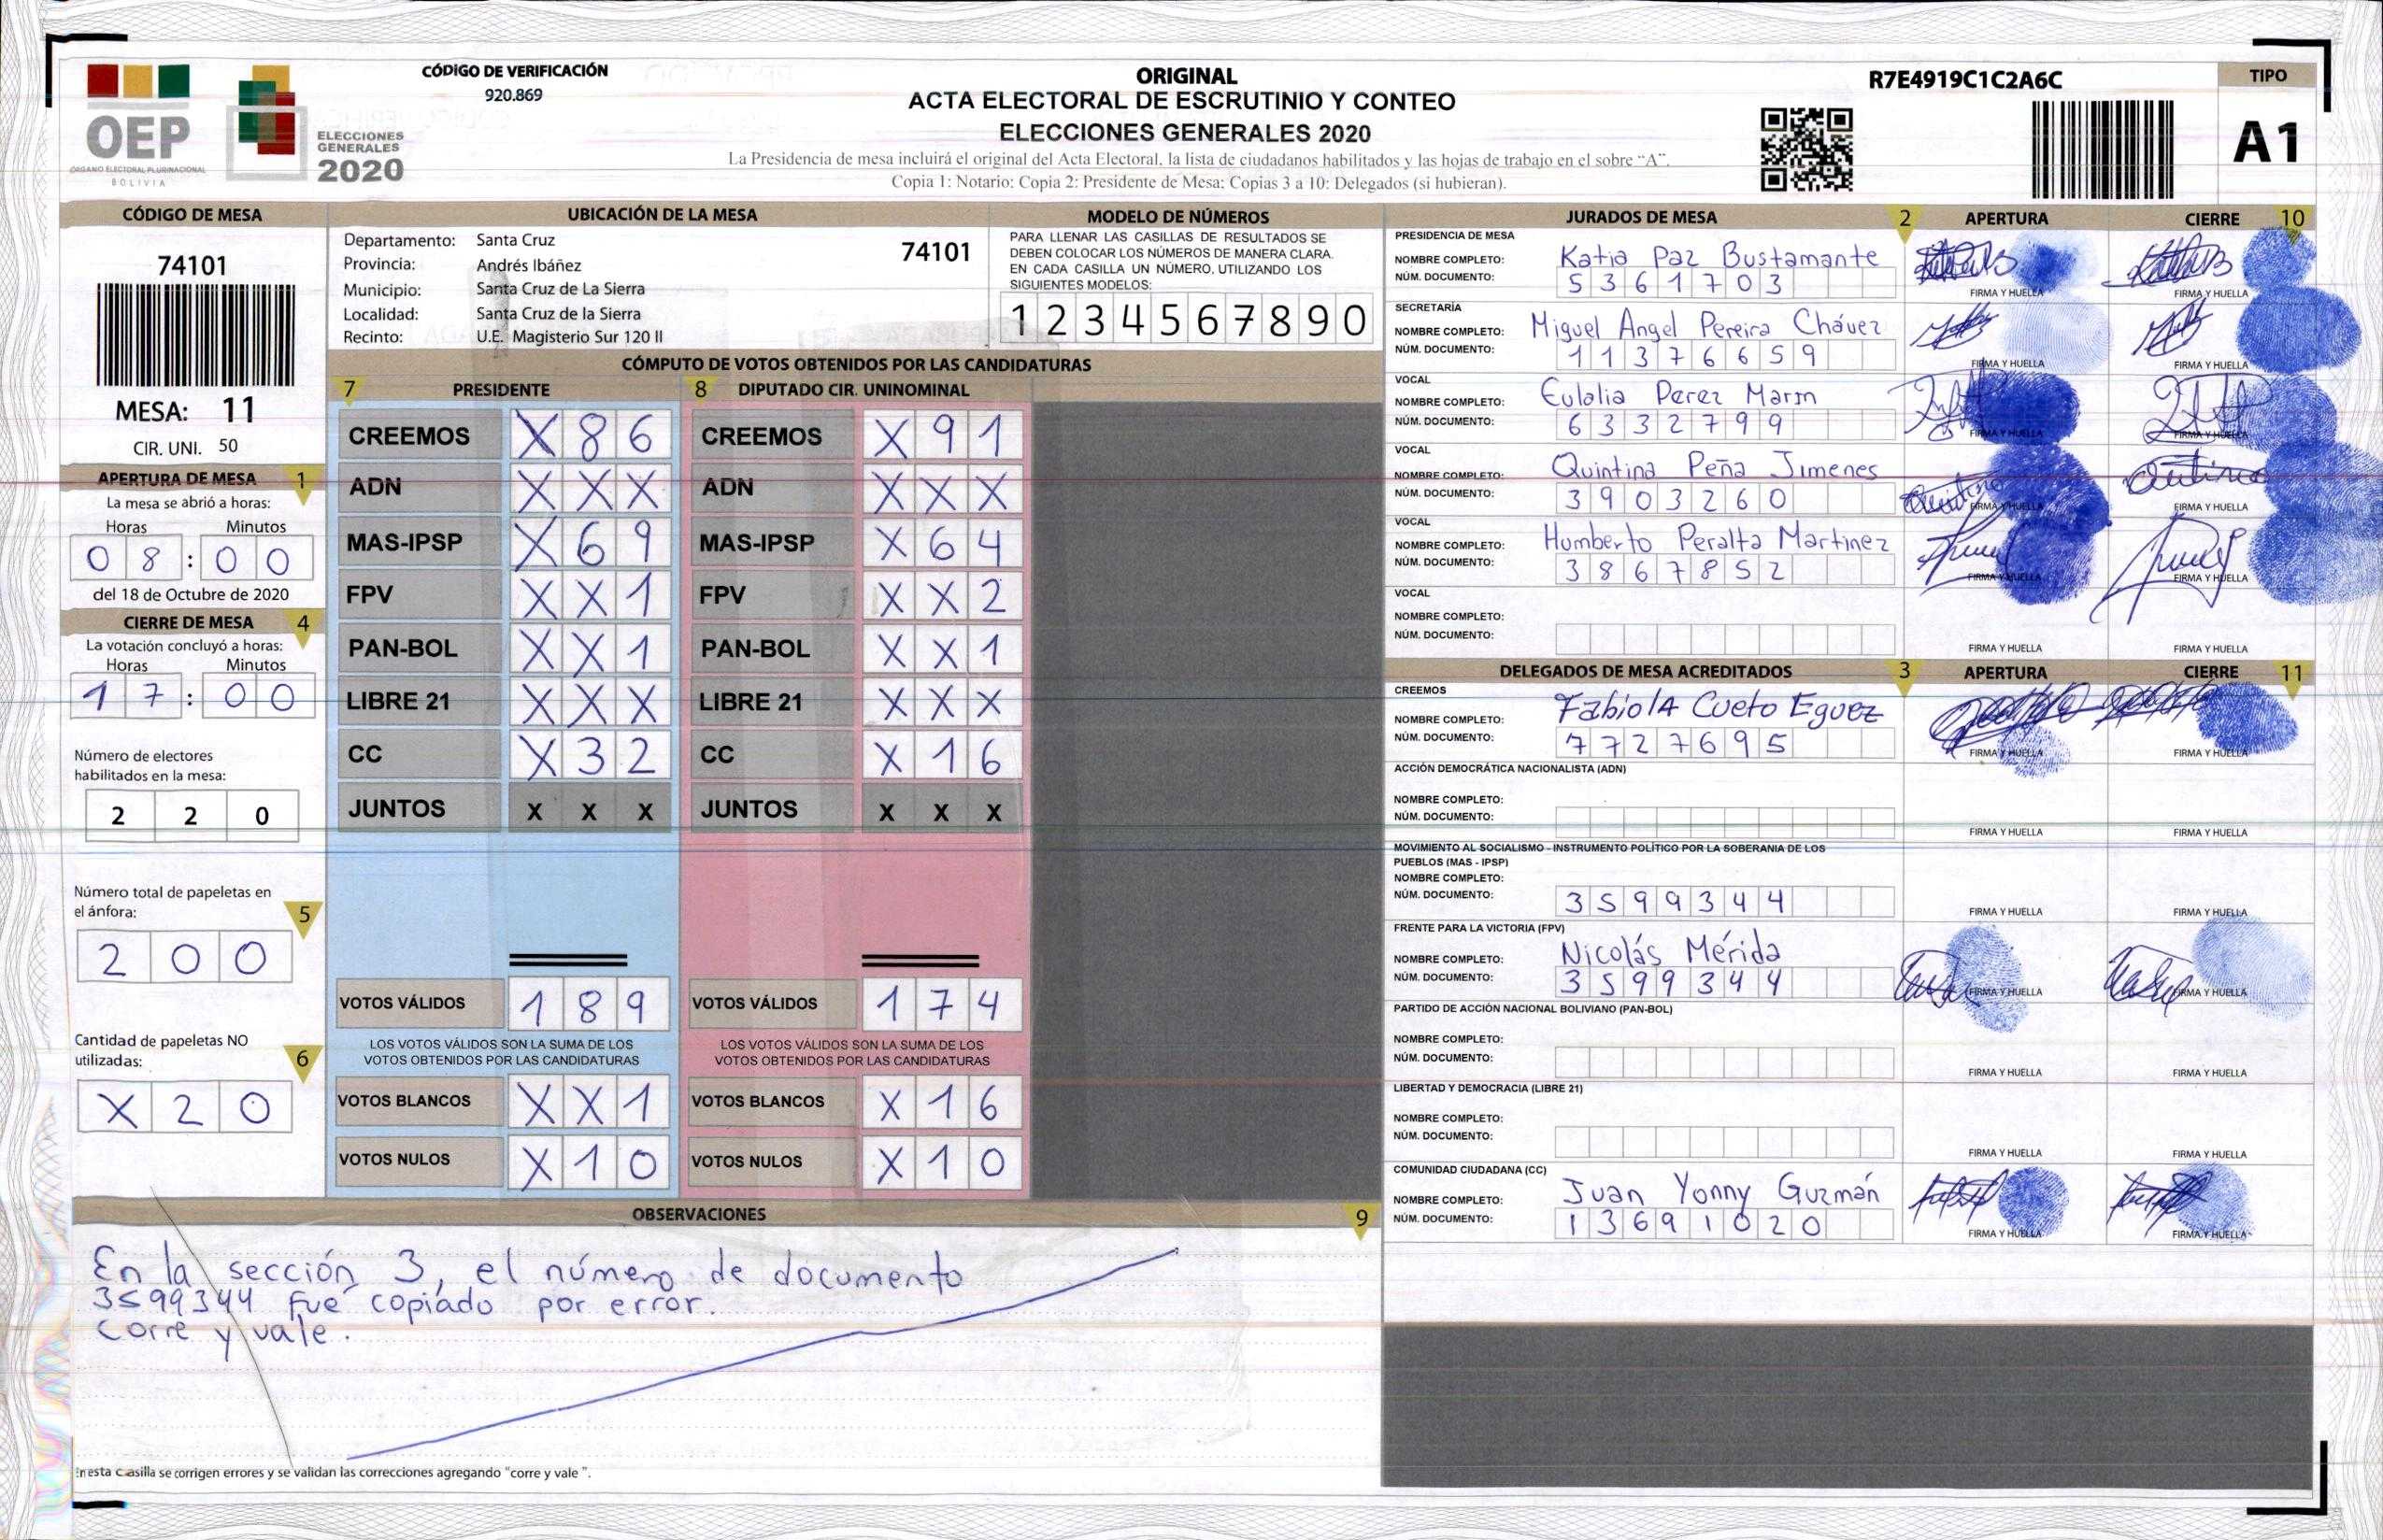 OEP
ÓRGANO ELECTORAL PLURINACIONAL
BOLIVIA
ELECCIONES
GENERALES
2020
CÓDIGO DE VERIFICACIÓN
920.869
ORIGINAL
ACTA ELECTORAL DE ESCRUTINIO Y CONTEO
ELECCIONES GENERALES 2020
La Presidencia de mesa incluirá el original del Acta Electoral, la lista de ciudadanos habilitados y las hojas de trabajo en el sobre “A”.
Copia 1: Notario; Copia 2: Presidente de Mesa; Copias 3 a 10: Delegados (si hubieran).
R7E4919C1C2A6C
TIPO
A1
CÓDIGO DE MESA
74101
MESA: 11
CIR. UNI. 50
APERTURA DE MESA 1
La mesa se abrió a horas:
Horas Minutos
0 8 : 0 0
del 18 de Octubre de 2020
CIERRE DE MESA 4
La votación concluyó a horas:
Horas Minutos
1 7 : 0 0
Número de electores
habilitados en la mesa:
2 2 0
Número total de papeletas en
el ánfora: 5
2 0 0
Cantidad de papeletas NO
utilizadas: 6
X 2 0
UBICACIÓN DE LA MESA
Departamento: Santa Cruz 74101
Provincia: Andrés Ibáñez
Municipio: Santa Cruz de La Sierra
Localidad: Santa Cruz de la Sierra
Recinto: U.E. Magisterio Sur 120 II
MODELO DE NÚMEROS
PARA LLENAR LAS CASILLAS DE RESULTADOS SE
DEBEN COLOCAR LOS NÚMEROS DE MANERA CLARA.
EN CADA CASILLA UN NÚMERO, UTILIZANDO LOS
SIGUIENTES MODELOS:
1 2 3 4 5 6 7 8 9 0
CÓMPUTO DE VOTOS OBTENIDOS POR LAS CANDIDATURAS
7 PRESIDENTE 8 DIPUTADO CIR. UNINOMINAL
CREEMOS X 8 6 CREEMOS X 9 1
ADN X X X ADN X X X
MAS-IPSP X 6 9 MAS-IPSP X 6 4
FPV X X 1 FPV X X 2
PAN-BOL X X 1 PAN-BOL X X 1
LIBRE 21 X X X LIBRE 21 X X X
CC X 3 2 CC X 1 6
JUNTOS X X X JUNTOS X X X
VOTOS VÁLIDOS 1 8 9 VOTOS VÁLIDOS 1 7 4
LOS VOTOS VÁLIDOS SON LA SUMA DE LOS LOS VOTOS VÁLIDOS SON LA SUMA DE LOS
VOTOS OBTENIDOS POR LAS CANDIDATURAS VOTOS OBTENIDOS POR LAS CANDIDATURAS
VOTOS BLANCOS X X 1 VOTOS BLANCOS X 1 6
VOTOS NULOS X 1 0 VOTOS NULOS X 1 0
OBSERVACIONES 9
En la sección 3, el número de documento
3599344 fué copiado por error.
Corre y vale.
En esta casilla se corrigen errores y se validan las correcciones agregando “corre y vale ”.
JURADOS DE MESA 2 APERTURA CIERRE 10
PRESIDENCIA DE MESA
NOMBRE COMPLETO: Katia Paz Bustamante
NÚM. DOCUMENTO: 5 3 6 1 7 0 3
FIRMA Y HUELLA FIRMA Y HUELLA
SECRETARÍA
NOMBRE COMPLETO: Miguel Angel Pereira Chávez
NÚM. DOCUMENTO: 1 1 3 7 6 6 5 9
FIRMA Y HUELLA FIRMA Y HUELLA
VOCAL
NOMBRE COMPLETO: Eulalia Perez Marin
NÚM. DOCUMENTO: 6 3 3 2 7 9 9
FIRMA Y HUELLA FIRMA Y HUELLA
VOCAL
NOMBRE COMPLETO: Quintina Peña Jimenes
NÚM. DOCUMENTO: 3 9 0 3 2 6 0
FIRMA Y HUELLA FIRMA Y HUELLA
VOCAL
NOMBRE COMPLETO: Humberto Peralta Martinez
NÚM. DOCUMENTO: 3 8 6 7 8 5 2
FIRMA Y HUELLA FIRMA Y HUELLA
VOCAL
NOMBRE COMPLETO:
NÚM. DOCUMENTO:
FIRMA Y HUELLA FIRMA Y HUELLA
DELEGADOS DE MESA ACREDITADOS 3 APERTURA CIERRE 11
CREEMOS
NOMBRE COMPLETO: FabiolA Cueto Eguez
NÚM. DOCUMENTO: 7 7 2 7 6 9 5
FIRMA Y HUELLA FIRMA Y HUELLA
ACCIÓN DEMOCRÁTICA NACIONALISTA (ADN)
NOMBRE COMPLETO:
NÚM. DOCUMENTO:
FIRMA Y HUELLA FIRMA Y HUELLA
MOVIMIENTO AL SOCIALISMO - INSTRUMENTO POLÍTICO POR LA SOBERANIA DE LOS
PUEBLOS (MAS - IPSP)
NOMBRE COMPLETO:
NÚM. DOCUMENTO: 3 5 9 9 3 4 4
FIRMA Y HUELLA FIRMA Y HUELLA
FRENTE PARA LA VICTORIA (FPV)
NOMBRE COMPLETO: Nicolás Mérida
NÚM. DOCUMENTO: 3 5 9 9 3 4 4
FIRMA Y HUELLA FIRMA Y HUELLA
PARTIDO DE ACCIÓN NACIONAL BOLIVIANO (PAN-BOL)
NOMBRE COMPLETO:
NÚM. DOCUMENTO:
FIRMA Y HUELLA FIRMA Y HUELLA
LIBERTAD Y DEMOCRACIA (LIBRE 21)
NOMBRE COMPLETO:
NÚM. DOCUMENTO:
FIRMA Y HUELLA FIRMA Y HUELLA
COMUNIDAD CIUDADANA (CC)
NOMBRE COMPLETO: Juan Yonny Guzmán
NÚM. DOCUMENTO: 1 3 6 9 1 0 2 0
FIRMA Y HUELLA FIRMA Y HUELLA